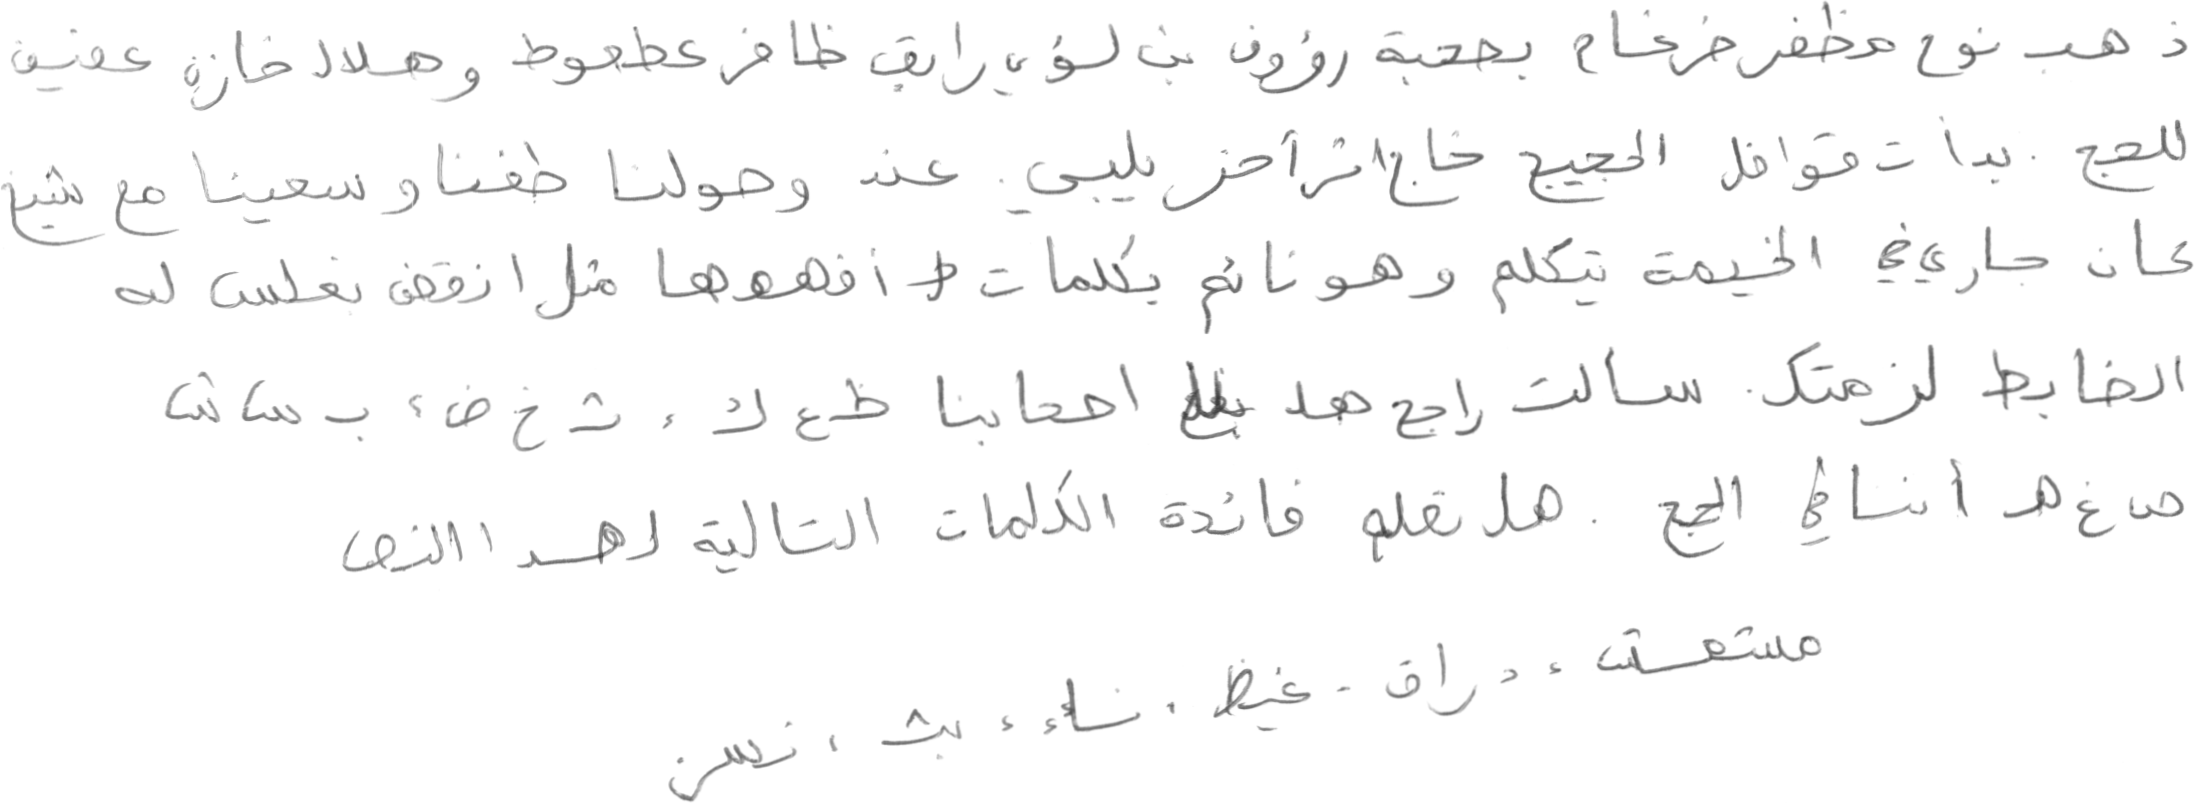 ذهب نوح مظفر ضرغام بصحبة رؤوف بن لؤي رايق ظافر عطعوط وهلال خازن عفيف
للحج . بدأت قوافل الحجيج خاج اثر آخر يلبي . عند وصولنا طفنا وسعينا مع شيخ
كان جاري في الخيمة يتكلم وهو نائم بكلمات لا أفهمها مثل انقض بغلس له
الضابط لزمتك . سألت راجح هل بلغ اصحابنا ظ ع ك ، ث خ ض ، ب س ش
ص غ ه أننا في الحج . هل تعلم فائدة الكلمات التالية لهذا النص
، راق - غيظ ، نساء ، بث ، نسر